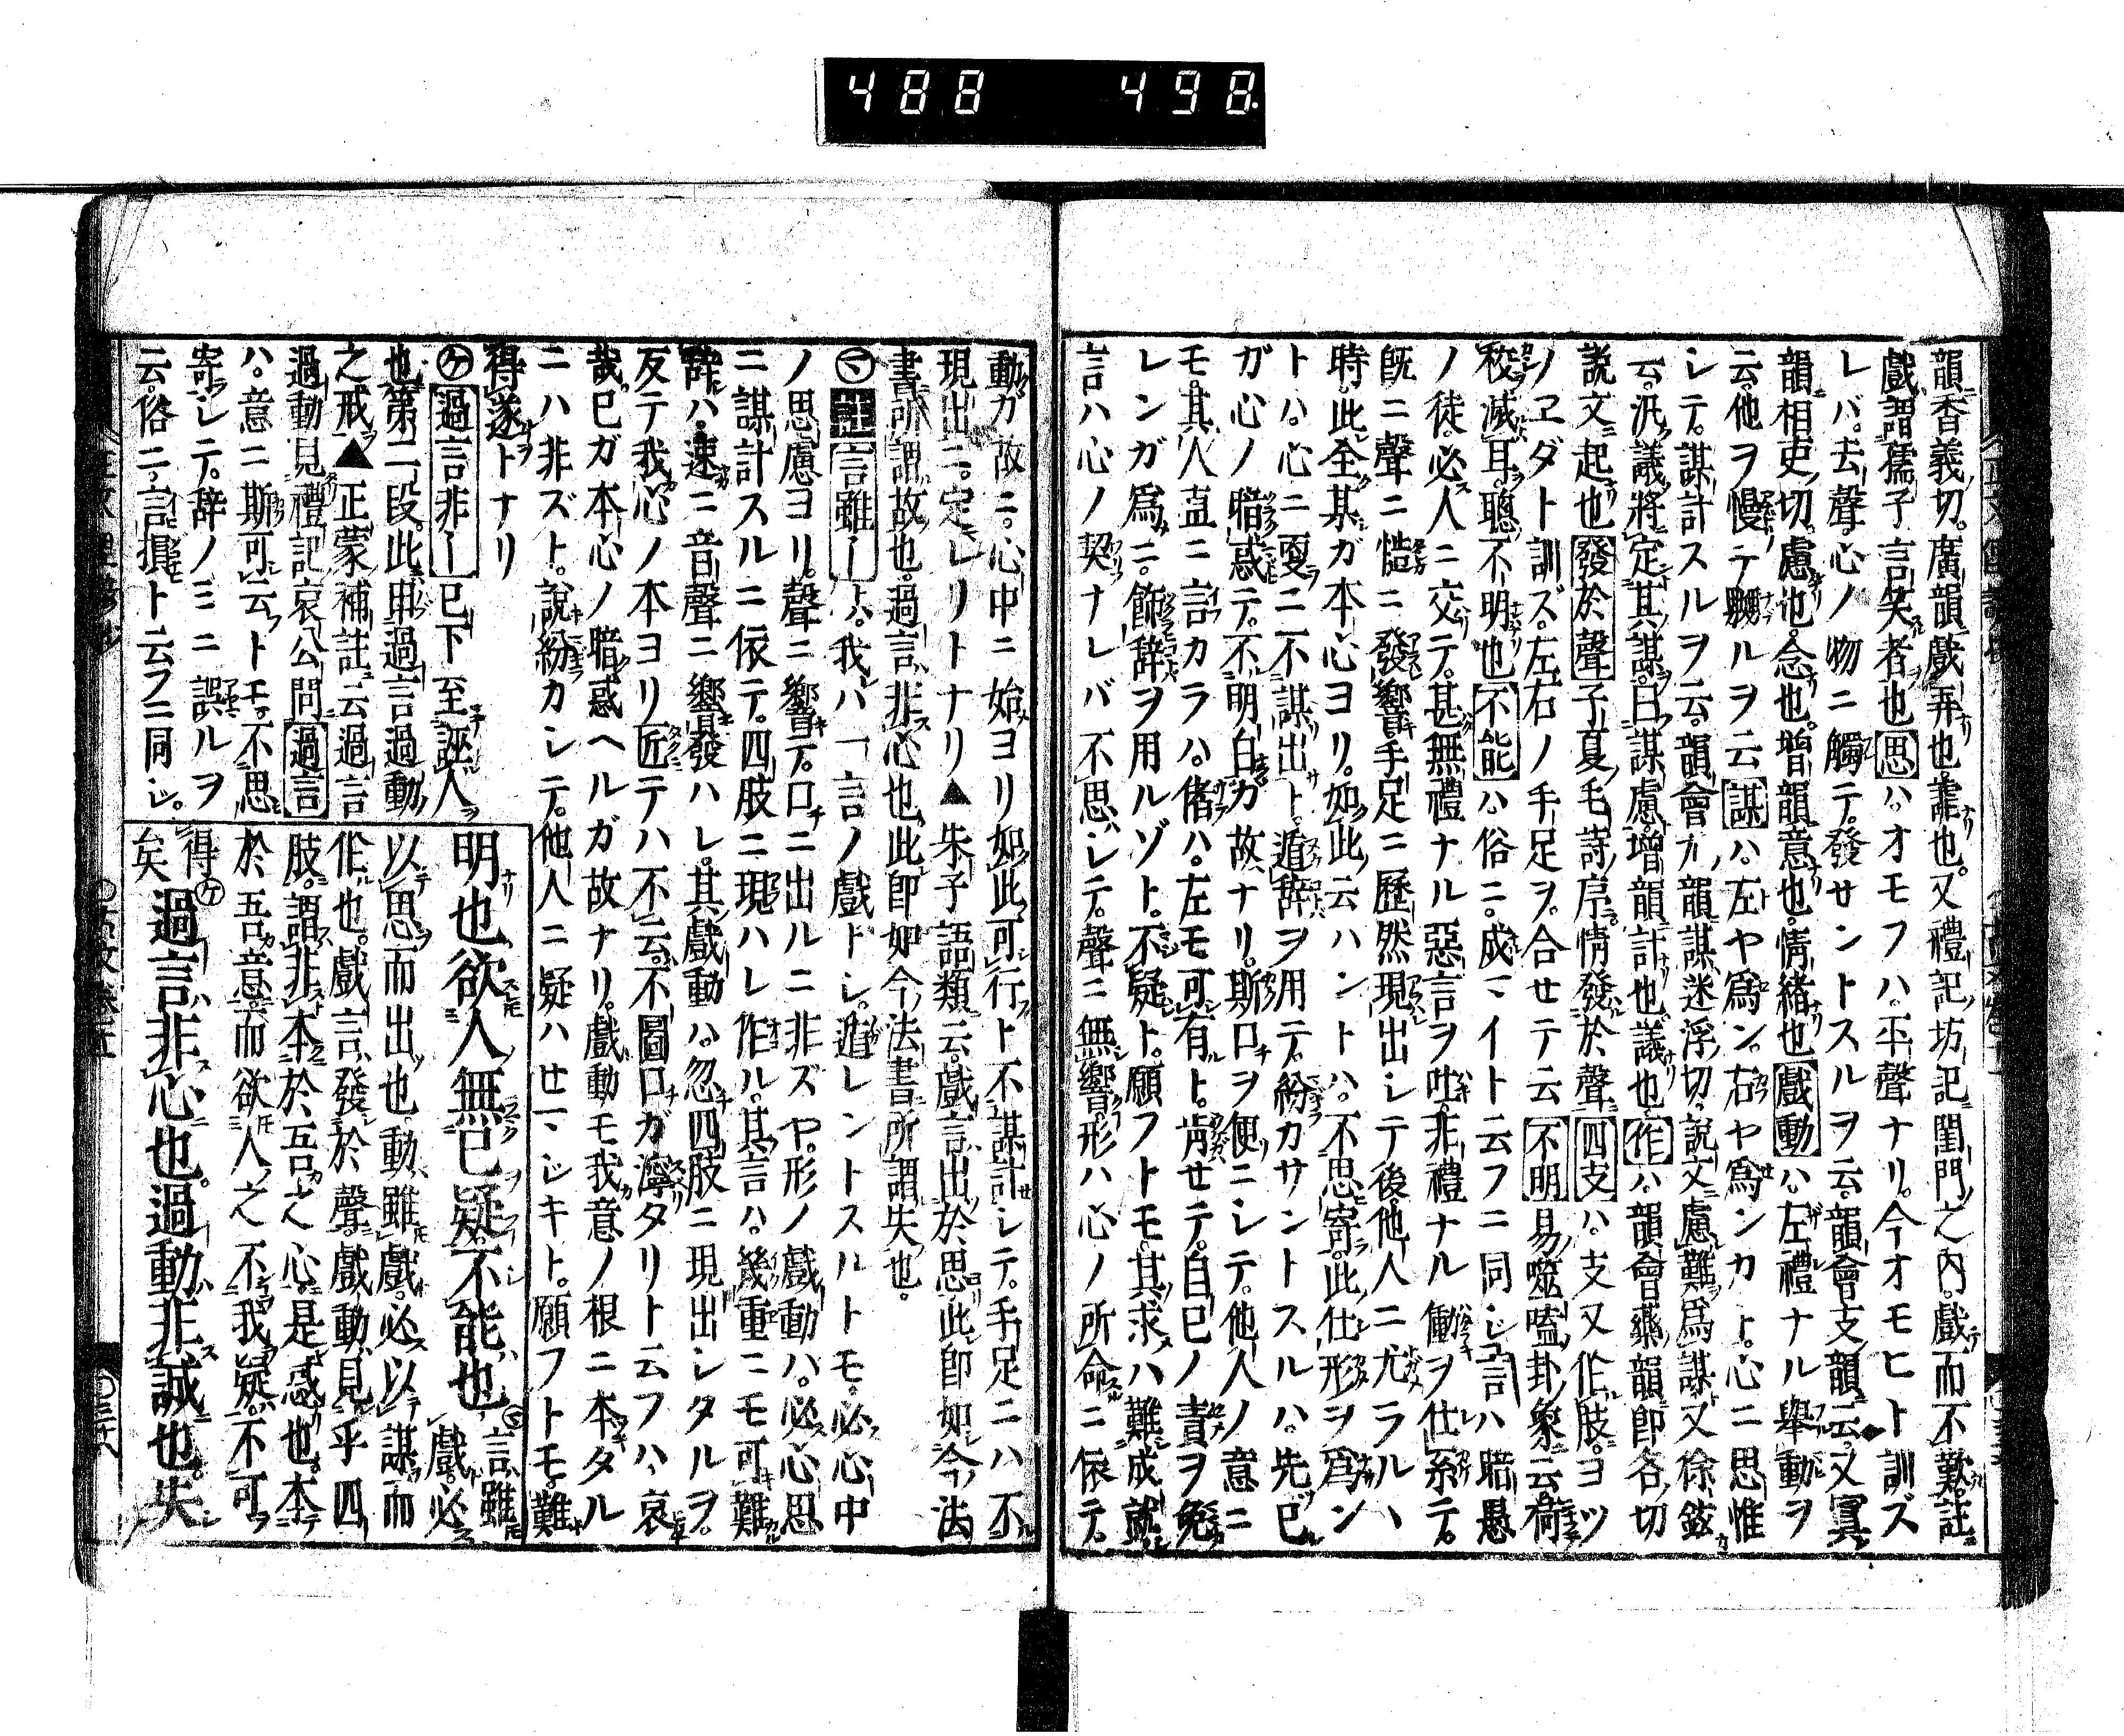 488 498
韻香義切廣韻戲弄也謔也又禮記坊記閨門之內戲而不歎註
戲謂孺子言笑者也思ハオモフハ平聲ナリ今オモヒト訓ズ
レバ去聲心ノ物ニ觸テ發サントスルヲ云韻會支韻云又寘
韻相吏切慮也念也增韻意也情緒也戲動ハ左禮ナル舉動ヲ
云他ヲ慢テ嬲ルヲ云謀ハ左ヤ爲ン右ヤ爲ンカト心ニ思惟
シテ謀計スルヲ云韻會尤韻謀迷浮切說文慮難爲謀又徐鉉
云汎議將定其謀曰謀慮增韻計也議也作ハ韻會藥韻即各切
說文起也發於聲子夏毛詩序情發於聲四支ハ支又作肢ヨツ
ノヱダト訓ズ左右ノ手足ヲ合セテ云不明易噬嗑卦象云荷
校滅耳聰不明也不能ハ俗ニ成マイト云フニ同シ言ハ暗愚
ノ徒必人ニ交テ甚無禮ナル惡言ヲ吐非禮ナル働ヲ仕系テ
既ニ聲ニ慥ニ發響手足ニ歷然現出シテ後他人ニ尤ラルハ
時此全某ガ本心ヨリ如此云ハントハ不思寄此仕形ヲ爲ン
トハ心ニ戛ニ不謀出ト遁辞ヲ用テ紛カサントスルハ先已
ガ心ノ暗惑テ不明白カ故ナリ斯口ヲ便ニシテ他人ノ意ニ
モ其人直ニ言カラハ偖ハ左モ可有ト肯セテ自已ノ責ヲ免
レンガ爲ニ飾辞ヲ用ルゾト不疑ト願フトモ其求ハ難成就
言ハ心ノ契ナレバ不思シテ聲ニ無響形ハ心ノ所命ニ依テ
動カ故ニ心中ニ始ヨリ如此可行ト不謀計シテ手足ニハ不
現出ニ定レリトナリ▲朱子語類云戲言出於思此即如今法
書所謂故也過言非心也此即如今法書所謂失也
㋮註言雖ー上ハ我ハ一言ノ戲トシ遁レントスルトモ必心中
ノ思慮ヨリ聲ニ響テ口ニ出ルニ非ズヤ形ノ戲動ハ必心思
ニ謀計スルニ依テ四肢ニ現ハレ作ル其言ハ幾重ニモ可難
辞ハ速ニ音聲ニ響發ハレ其戲動ハ忽四肢ニ現出シタルヲ
反テ我心ノ本ヨリ匠テハ不云不圖口ガ濘タリト云フハ哀
哉已ガ本心ノ暗惑ヘルガ故ナリ戲動モ我意ノ根ニ本タル
ニハ非ズト說紛カシテ他人ニ疑ハセマシキト願フトモ難
得遂トナリ
㋘過言非ー已下至誣人
也第二段此申過言過動
之戒▲正蒙補註云過言
過動見禮記哀公問過言
ハ意ニ斯可云トモ不思
寄シテ辞ノミニ誤ルヲ
云俗ニ言損ト云フニ同シ
明也欲人無已疑不能也㋮言雖戲必
以思而出也動雖戲必以謀而
作也戲言發於聲戲動見乎四
肢謂非本於吾之心是惑也本
於吾意而欲人之不我疑不可
得㋘
矣過言非心也過動非誠也失